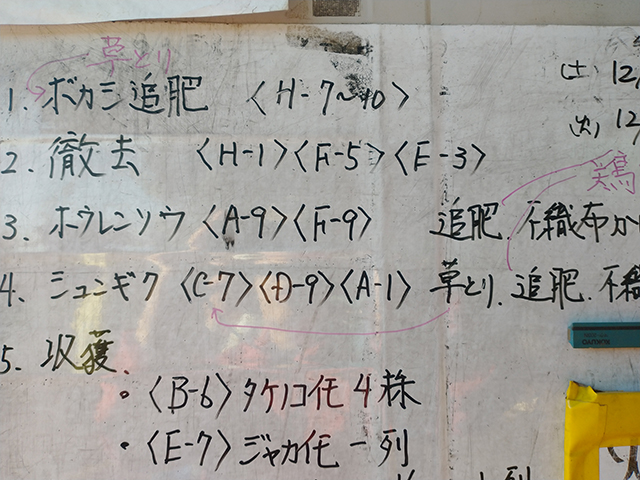 草とり
(土) 12,
1. ボカシ追肥 〈H-7~10〉
(火) 12,
2. 撤去 〈H-1〉〈F-5〉〈E-3〉
鶏
3. ホウレンソウ〈A-9〉〈F-9〉 追肥、不織布か
4. シュンギク〈C-7〉〈D-9〉〈A-1〉草とり、追肥、不織
5. 収獲、
・〈B-6〉タケノコ代 4株
・〈E-7〉ジャカ代 一列